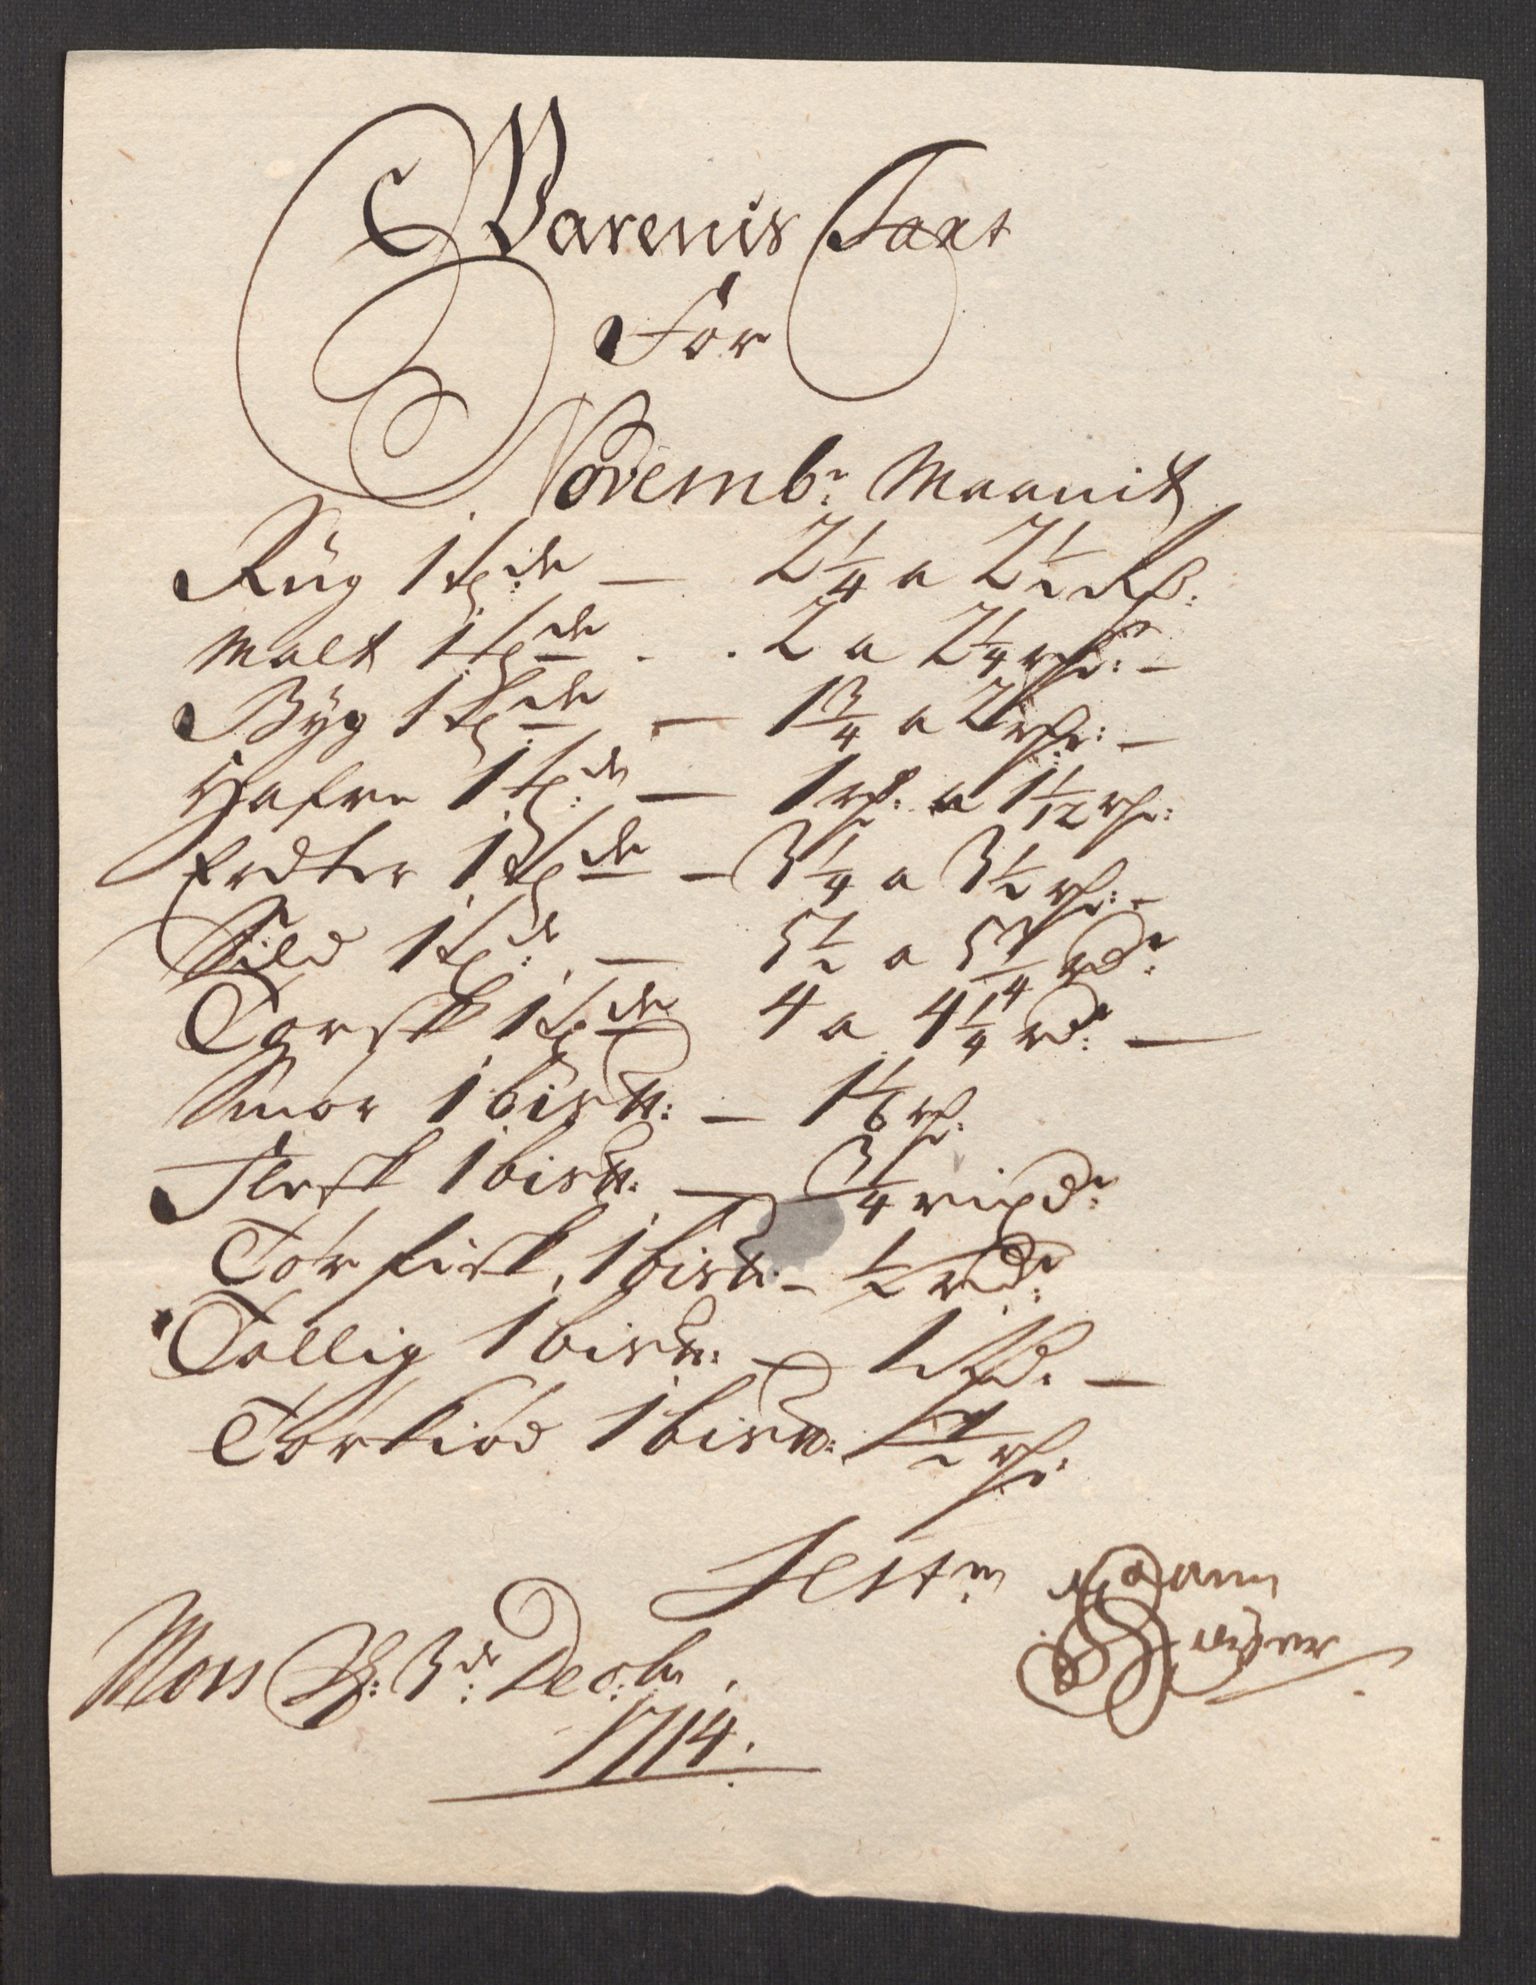 Varenis Taxt
For
Novembr: Maanit
Rüg 1 tde — 2 1/4 a 2 1/2 Rd:
Malt 1 tde . . 2 a 2 1/4 rd: —
Byg 1 tde — 1 3/4 a 2 rd: —
Hafre 1 tde — 1 rd. a 1 1/12 rd:
Erdter 1 tde — 3 1/4 a 3 1/2 rd: —
Sild 1 td: — 5 1/2 a 5 3/4 rdr:
Torsk 1 tde 4 a 4 1/4 rd: —
Smör 1 bis℔: — 1 1/6 rd:
Flesk 1 bis℔: — 3/4 rixdr:
Tör fisk, 1 bis℔: — 1/2 rdr:
Tallig 1 bis℔: — 1 Rd. —
Törkiöd 1 bis℔: 1/2 rd:
Test:
Moss d: 3de Decbr.
1714.